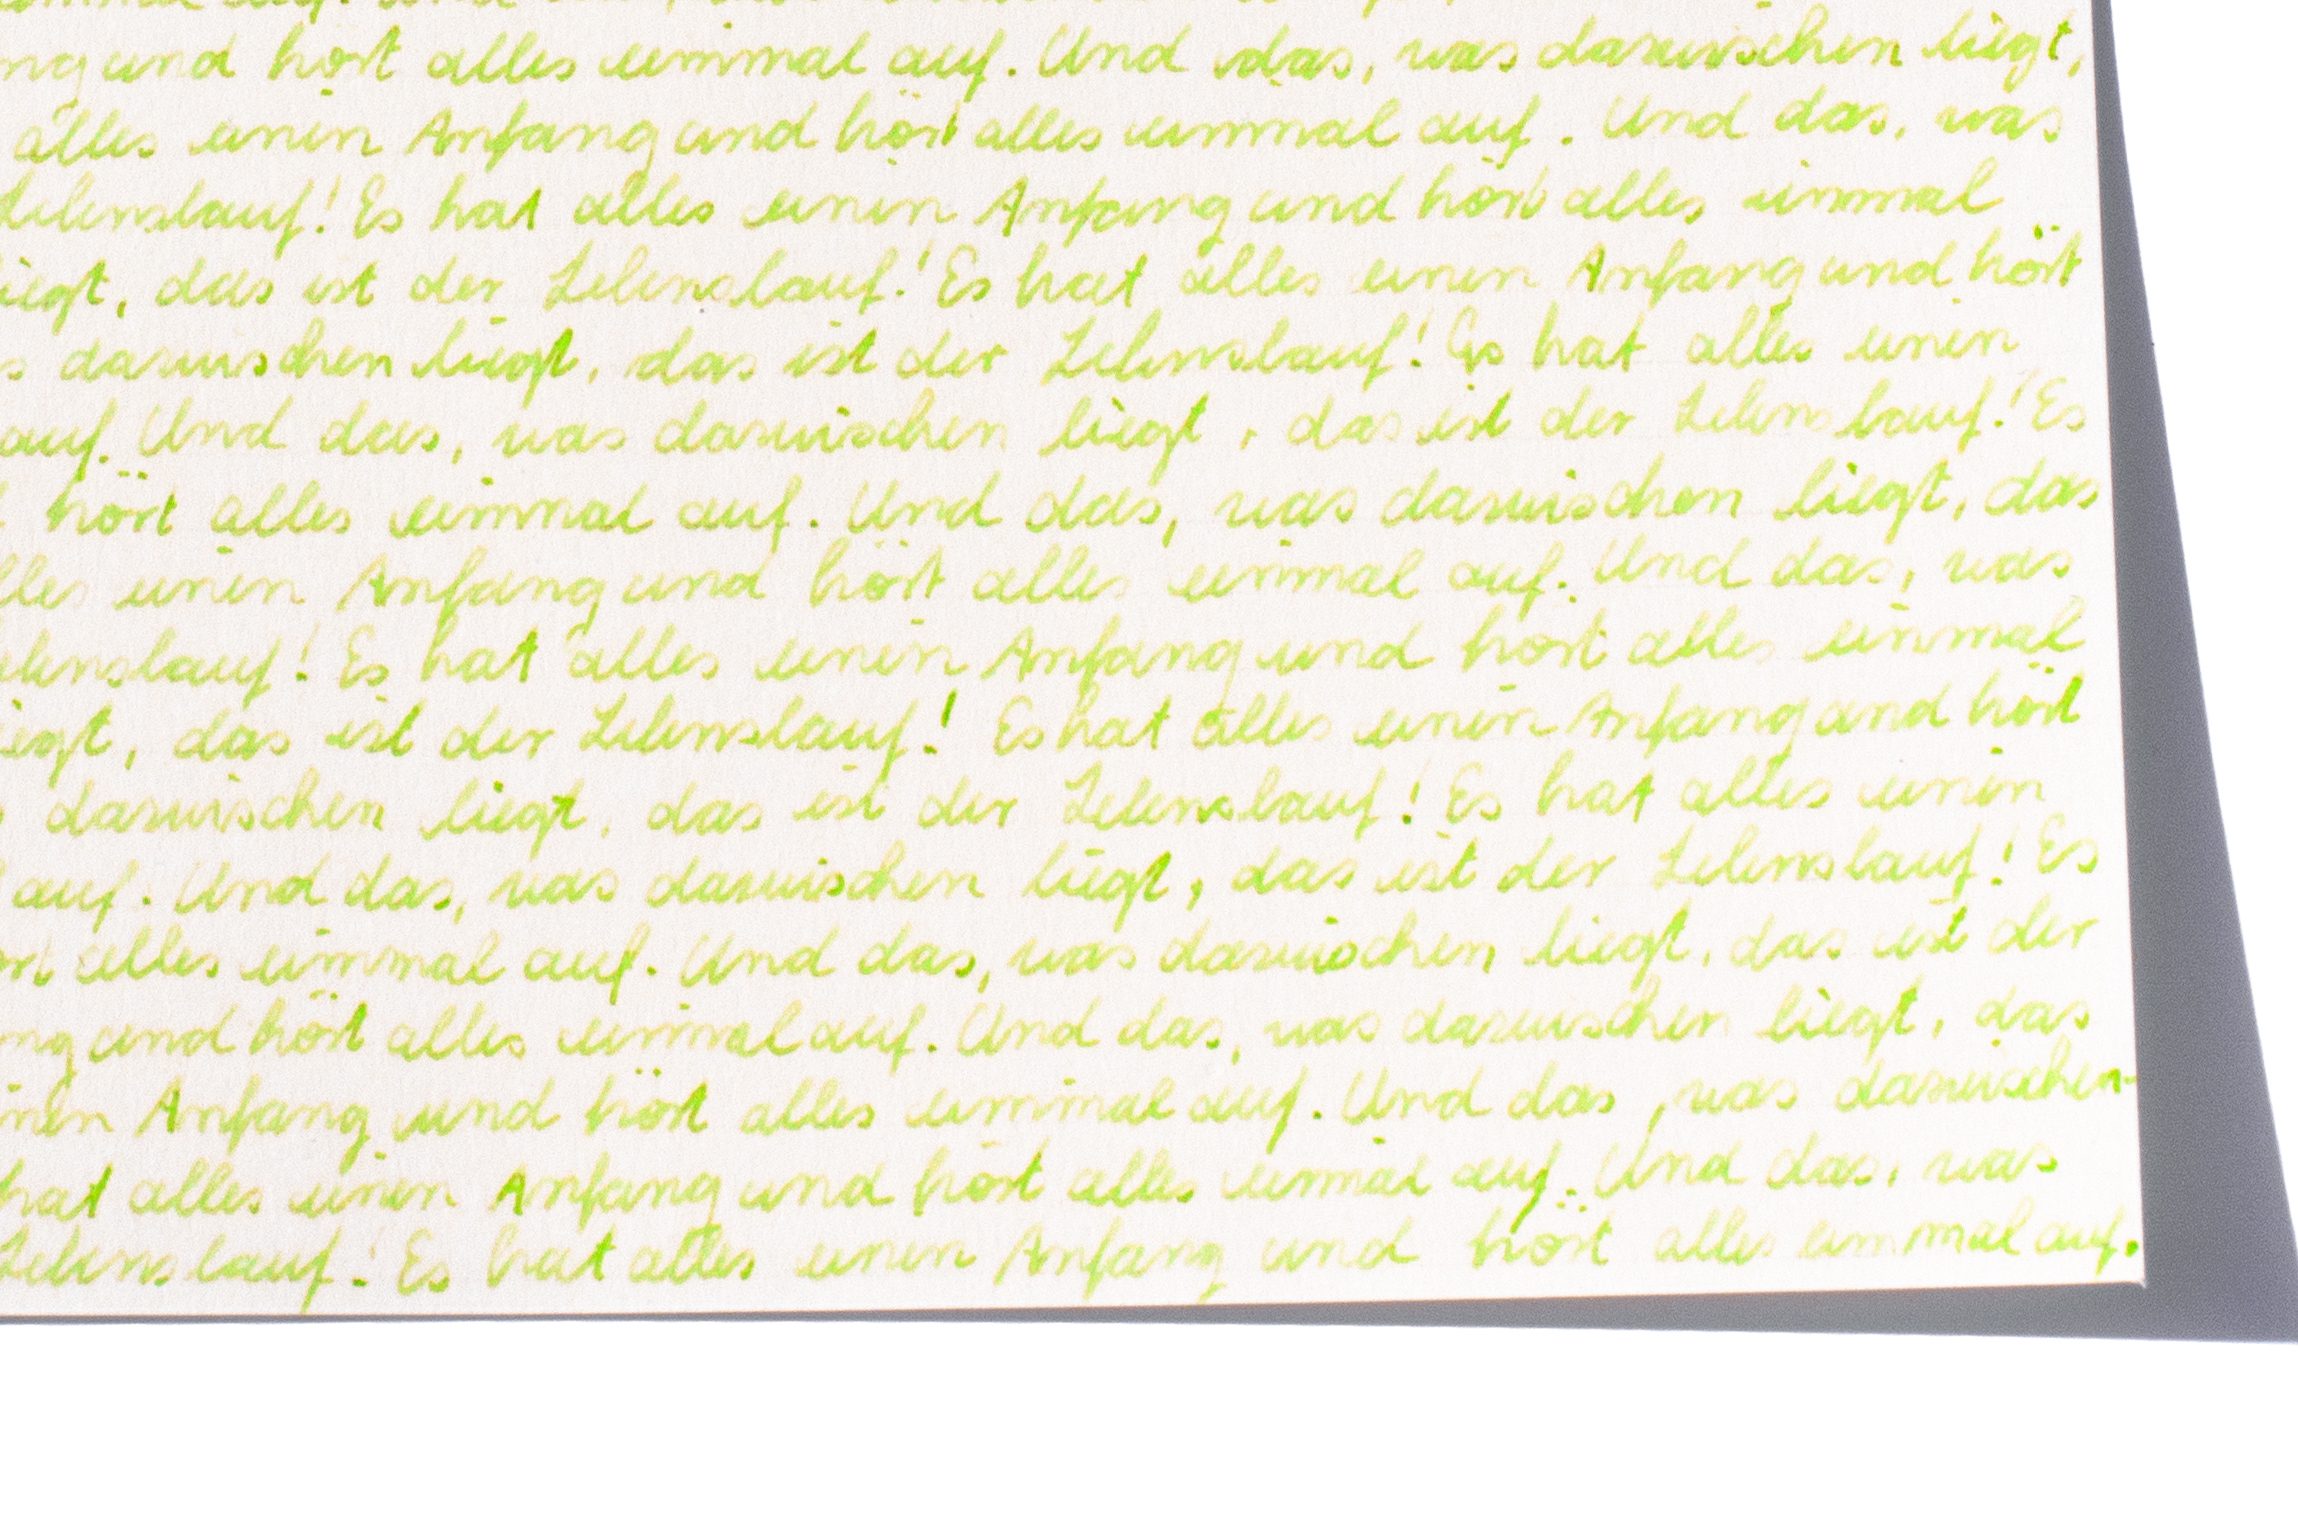 und hört alles einmal auf. Und das, was dazwischen liegt,
alles einen Anfang und hört alles einmal auf. Und das, was
Lebenslauf! Es hat alles einen Anfang und hört alles einmal
liegt, das ist der Lebenslauf! Es hat alles einen Anfang und hört
dazwischen liegt, das ist der Lebenslauf! Es hat alles einen
auf. Und das, was dazwischen liegt, das ist der Lebenslauf! Es
hört alles einmal auf. Und das, was dazwischen liegt, das
alles einen Anfang und hört alles einmal auf. Und das, was
Lebenslauf! Es hat alles einen Anfang und hört alles einmal
liegt, das ist der Lebenslauf! Es hat alles einen Anfang und hört
dazwischen liegt, das ist der Lebenslauf! Es hat alles einen
auf. Und das, was dazwischen liegt, das ist der Lebenslauf! Es
hört alles einmal auf. Und das, was dazwischen liegt, das ist der
und hört alles einmal auf. Und das, was dazwischen liegt, das
einen Anfang und hört alles einmal auf. Und das, was dazwischen
hat alles einen Anfang und hört alles einmal auf. Und das, was
Lebenslauf! Es hat alles einen Anfang und hört alles einmal auf.